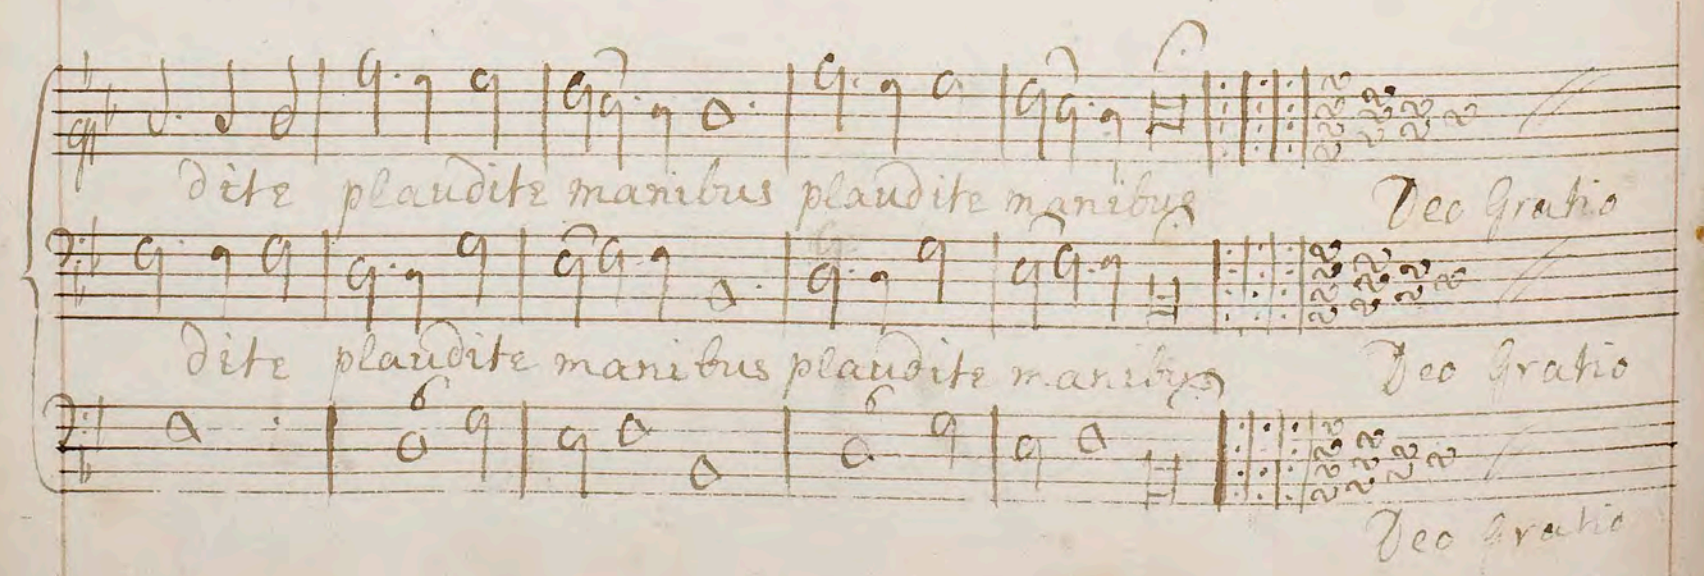 dite plaudite manibus plaudite manibus Deo Gratio
dite plaudite manibus plaudite manibus Deo Gratio
6 6
Deo Gratio